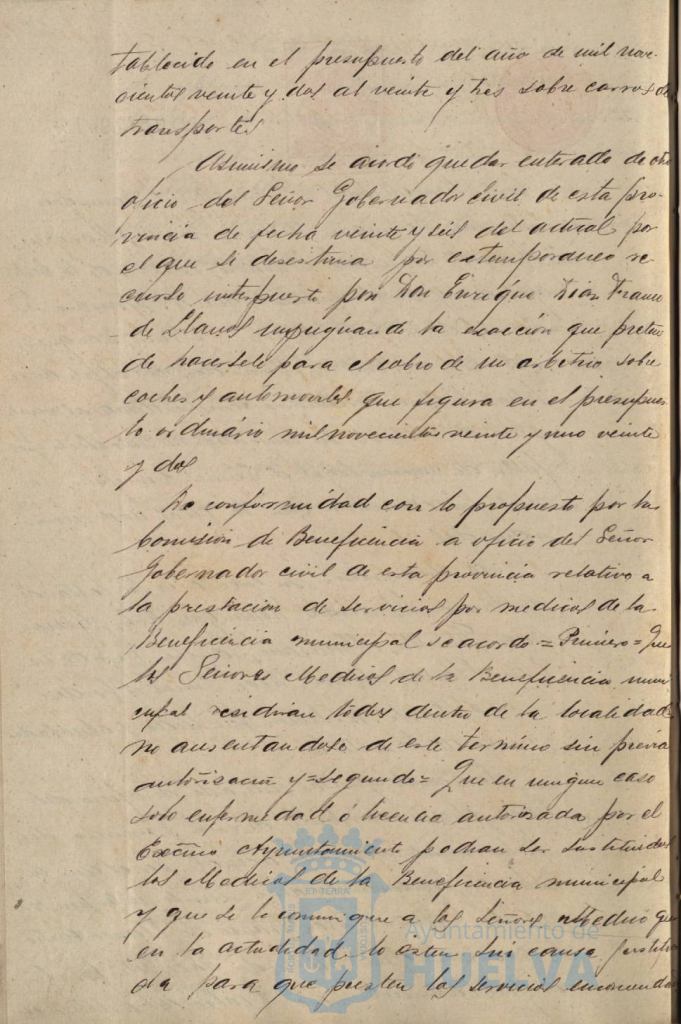 tablecido en el presupuesto del año de mil nove-
cientos veinte y dos al veinte y tres sobre carros de
transportes
Asimismo se acordó quedar enterado de otro
oficio del Señor Gobernador civil de esta pro-
vincia de fecha veinte y seis del actual por
el que se desestima por extemporaneo re-
curso interpuesto por Don Enrique Diaz Franco
de Llanos impugnando la exacción que preten
de hacersele para el cobro de un arbitrio sobre
coches y automoviles que figura en el presupues
to ordinario mil novecientos veinte y uno veinte
y dos
De conformidad con lo propuesto por la
Comisión de Beneficencia a oficio del Señor
Gobernador civil de esta provincia relativo a
la prestacion de servicios por medicos de la
Beneficencia municipal se acordo = Primero = Que
los Señores Medicos de la Beneficencia muni
cipal residiran todos dentro de la localidad
no ausentandose de este termino sin previa
autorización y = segundo = Que en ningun caso
solo enfermedad ó licencia autorizada por el
Excmo Ayuntamiento podran ser sustituidos
los Medicos de la Beneficencia municipal
y que se lo comunique a los Señores Medicos que
en la actualidad lo esten sin causa justifica
da para que presten los servicios encomendados
Ayuntamiento de
HUELVA